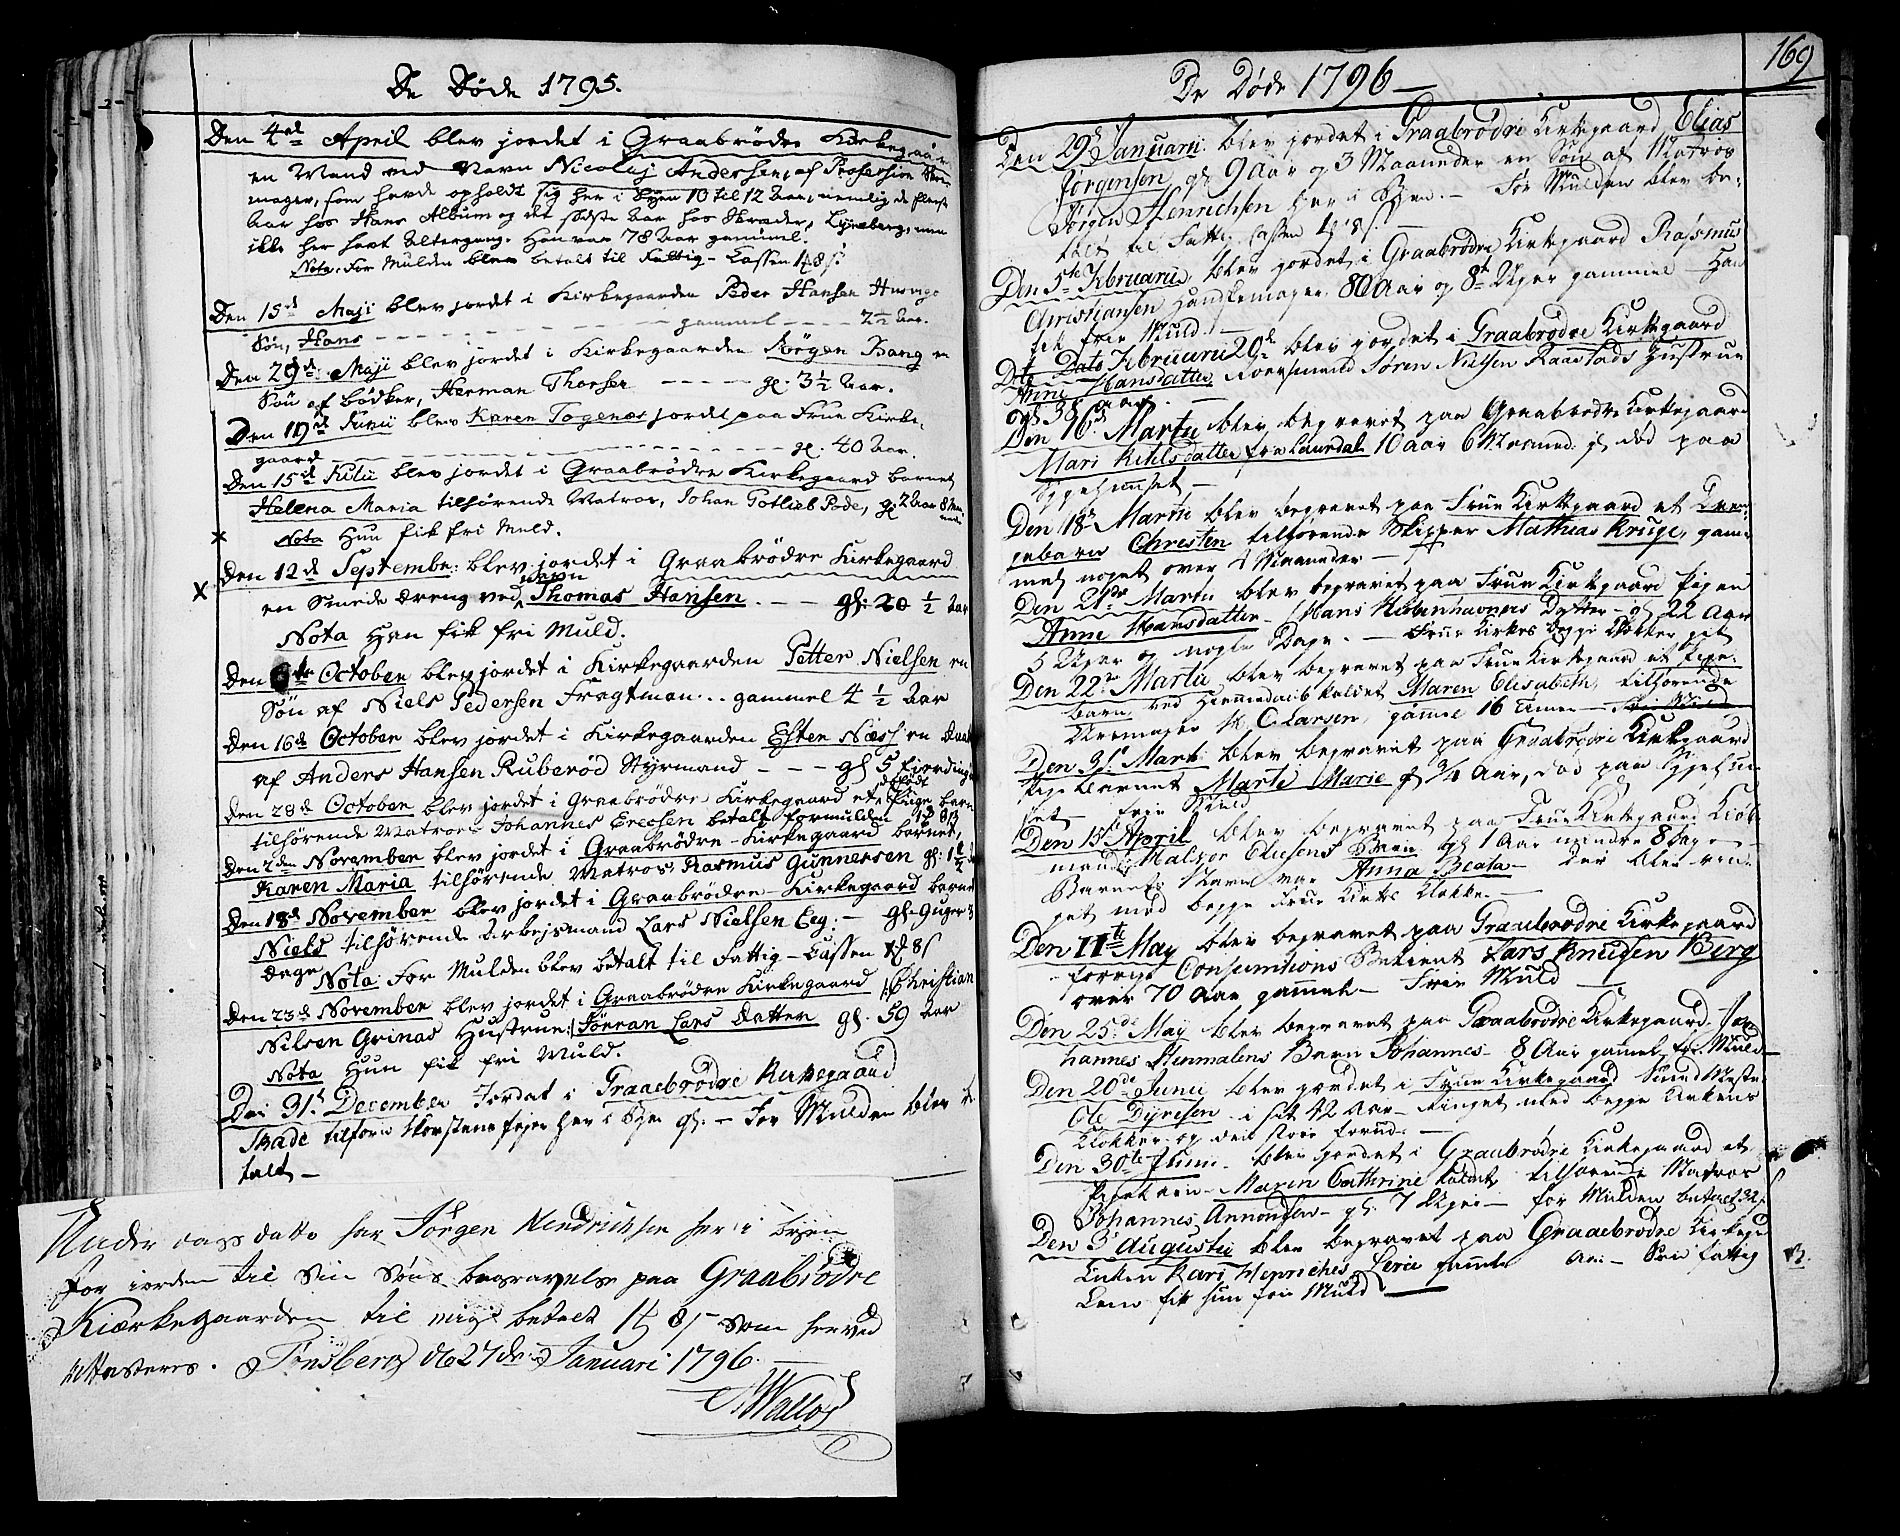 De Døde 1795.
Den 4de April blev jordet i Graabrødre Kirkegaar
en Mand ved Navn Nicolaj Andersen, af Profession
mager, som havde opholdt sig her i Byen 10 til 12 Aar, nemlig de fleeste
Aar hos Hans Album og det sidste Aar hos Skræder, Lyneberg, men
ikke her havt Altergang. Han var 78 Aar gammel.
Nota. For Mulden blev betalt til Fattig-Cassen 1 ₰ 8 s.
Den 15de Maji blev jordet i Kirkegaarden Peder Hansen Husvigs
Søn, Hans - - - gammel - - - 2½ Aar.
Den 29de Maji blev jordet i Kirkegaarden Jørgen Bang en
Søn af Bødker, Herman Thorser - - - - gl. 3½ Aar.
Den 19de Junii blev Karen Togenæs jordet paa Frue Kirke-
gaard - - - gl. 40 Aar.
Den 15de Julii blev jordet i Graabrødre Kirkegaard barnet
Helena Maria tilhørende Matros, Johan Gotlieb Pode, gl. 2 Aar 8 Maa
x Nota Hun fik fri Muld.
x Den 12de Septembe: blev jordet i Graabrødre Kirkegaard
en Smede Dreng ved Navn Thomas Hansen. - - gl: 20 ½ Aar
Nota Han fik fri Muld.
Den October blev jordet i Kirkegaarden Petter Nielsen en
Søn af Niels Pedersen Fragtman .. gammel 4 ½ Aar
Den 16de October blev jordet i Kirkegaarden Esten Næss en
af Anders Hansen Ruberød Styrmand - - - gl 5 Fierding
Den 28de October blev jordet i Graabrødre Kirkegaard et Pige barn
tilhørende Matros Johannes Erecsen betalt for mulden 1 ₰ 8 s
Den 2den November blev jordet i Graabrødre-Kirkegaard barnet,
Karen Maria tilhørende Matros Rasmus Gunnersen gl: 1½
Den 18de November blev jordet i Graabrødre-Kirkegaard barnet
Niels tilhørende Arbejsmand Lars Nielsen Eeg: - gl. 9 uger 3
Dage Nota For Mulden blev betalt til Fattig-Cassen 1 ₰ 8 s
Den 23de November blev jordet i Graabrødre Kirkegaard |: Christian
Nilsen Grinas Hustrue :| Jørran Lars Datter gl. 59 Aar
Nota Hun fik fri Muld.
Den 31t December Jordat i Graaebrødre Kirkegaard
Bade tilforn Skorsteens fejer her i Byen gl. - For Mulden blev be
talt -
Under dags datto har Jørgen Hendrichsen her i Byen
for iorden til Sin Søns begravelse paa Graabrødre
Kiærkegaarden til mig betalt 1 ₰ 8 s som herved
Attesteres. Tønsberg de 27de Januari 1796.
Wallos
De Døde 1796
169
Den 29de Januarii blev jordet i Graabrødre Kirkegaard Elias
Jørgensen gl 9 Aar og 3 Maaneder en Søn af Matros
Jørgen Henrichsen her i Byen. - For Mulden blev be-
talt til Fattig Cassen 1 ₰ 8 s
Den 5te Februarii blev jordet i Graabrødre Kirkegaard Rasmus
Christiansen Handskemager 80 Aar og 8t Uger gammel - Han
fik frie Muld. -
Dito Februarii 20de blev jordet i Graabrødre Kirkegaard
Anne Hansdatter Søren Nielsen Raastads Hustrue
Den 16de Martii blev begravet paa Graabrødre Kirkegaard
Mari Kihlsdatter fra Laurdal 10 aar 6 Maaned: gl død paa
Sygehuuset -
Den 18de Martii blev begravet paa Frue Kirkegaard et Dren-
gebarn Christen tilhørende Skipper Mathias Kruge, gam-
mel noget over 4 Maaneder -
Den 21de Martii blev begravet paa Frue Kirkegaard Pigen
Anne Hansdatter - Hans Kiøbenhavners Datter - gl 22 Aar
5 Uger og nogle Dage. - Frue Kirkes begge Klokker git
Den 22de Martii blev begravet paa Frue Kirkegaard et Pige-
barn, ved Hiemmedaab kaldet Maren Elisabeth, tilhørende
Uremager Hr. C. Larsen, gamle 16 Timer -
Den 31. Marti blev begravet paa Graabrødre Kirkegaard
Pige Barnet Marte Marie gl ¾ Aar, død paa Sygehuu-
set - frie Muld
Den 15de April blev begravet paa Frue Kirkegaard Kiøb-
mand Malthe Olusens Barn gl 1 Aar mindre 8 Dage -
Barnets Navn var Anna Beata - Der blev rin-
get med begge Frue Kirkes Klokker. -
Den 11te May blev begravet paa Graabrødre Kirkegaard
forrige Consumtions Betient Lars Knudsen Berg
over 70 Aar gammel - Frie Muld -
Den 25de Maÿ blev begravet paa Graabrødre Kirkegaard Jo-
hannes Steenmalens Barn Johannes - 8 Aar gammel, fri Muld -
Den 20de Junii blev jordet i Frue Kirkegaard Smed Mester
Ole Dyresen i sit 42 Aar - Ringet med begge Kirkens
Klokker og den store forud. -
Den 30te Junii - blev jordet i Graabrødre Kirkegaard et
Pigebarn - Maren Cathrine kaldet tilhørende Matros
Johannes Annonsen - gl: 7 Uger - for Mulden betalt 32 s
Den 3de Augustii blev begravet paa Graaebrødre Kirkegd
Enken Kari Henriches Leria gamle Aar - Som fattig
Lem fik hun frie Muld